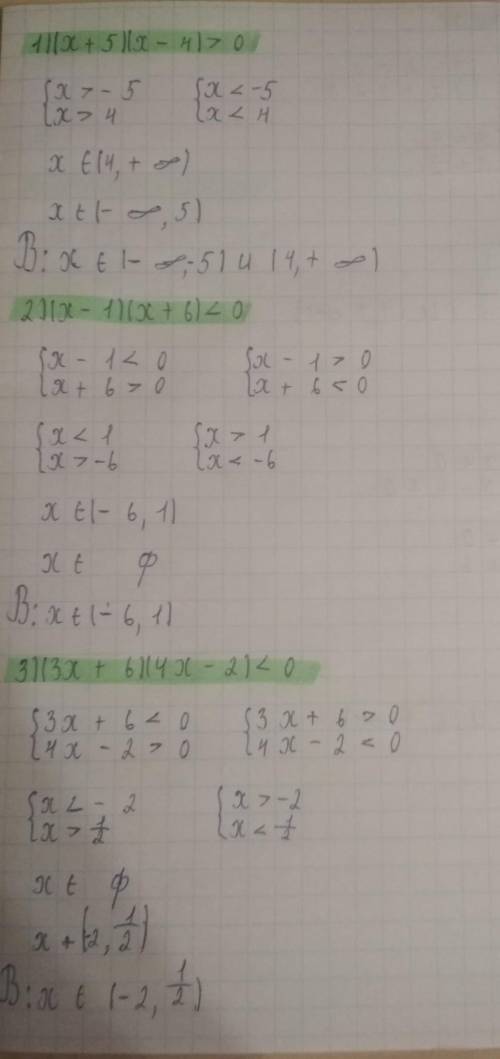 1)(x + 5)(x - 4) > 0
{x > - 5 {x < -5
{x > 4 {x < 4
x ∈ (4, + ∞)
x ∈ (- ∞, 5)
В: x ∈ (- ∞, -5) U (4, + ∞)
2)(x - 1)(x + 6) < 0
{x - 1 < 0 {x - 1 > 0
{x + 6 > 0 {x + 6 < 0
{x < 1 {x > 1
{x > -6 {x < -6
x ∈ (- 6, 1)
x ∈ ф
В: x ∈ (- 6, 1)
3)(3x + 6)(4x - 2) < 0
{3x + 6 < 0 {3x + 6 > 0
{4x - 2 > 0 {4x - 2 < 0
{x < - 2 {x > -2
{x > 1/2 {x < 1/2
x ∈ ф
x + (-2, 1/2)
В: x ∈ (-2, 1/2)